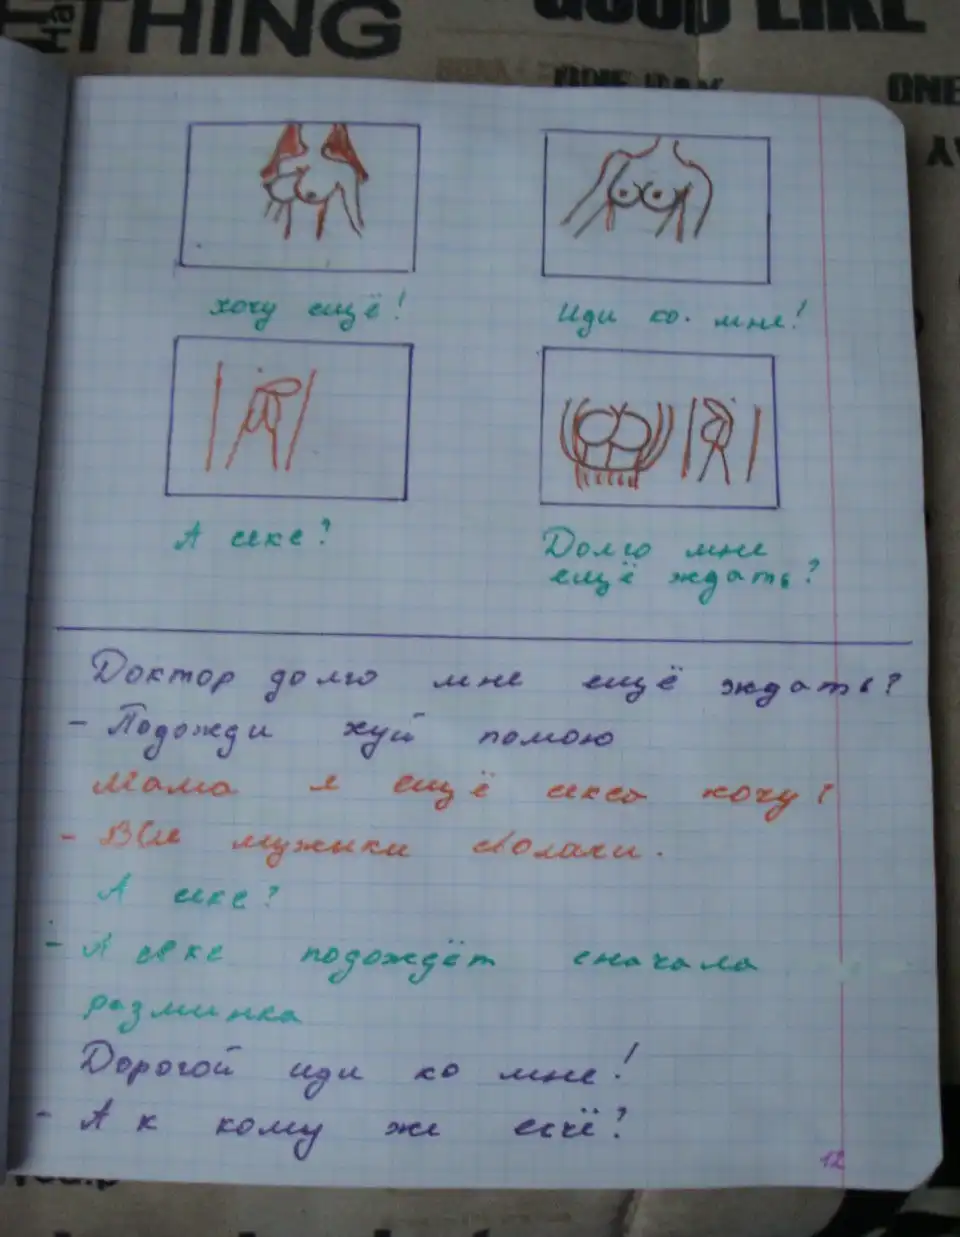 THING
GOOD LIKE
ONE DAY
ONE
хочу ещё!
Иди ко. мне!
А секс?
Долго мне
ещё ждать?
Доктор долго мне ещё ждать?
- Подожди хуй помою
Мама я ещё секса хочу!
- Все мужики сволочи.
А секс?
- А секс подождёт сначала
разминка
Дорогой иди ко мне!
- А к кому же есчё?
12